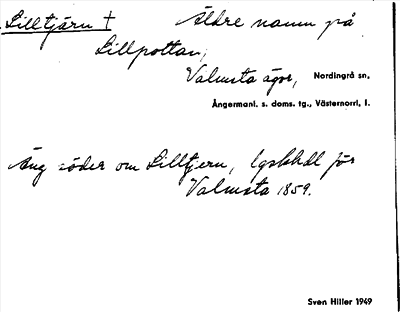 Lilltjärn † Äldre namn på
Lillpottan,
Valmsta ägor, Nordingrå sn,
Ångermanl. s. doms. tg., Västernorrl. l.
Äng söder om Lilltjern, lgskkdl för
Valmsta 1859.
Sven Hiller 1949